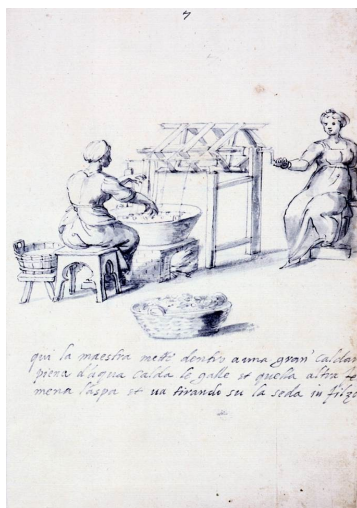 7
qui la maestra mette dentro a una gran' caldar
piena d'aqua calda le galle et quella altra
mena l'aspa et ua tirando su la seda in filzo